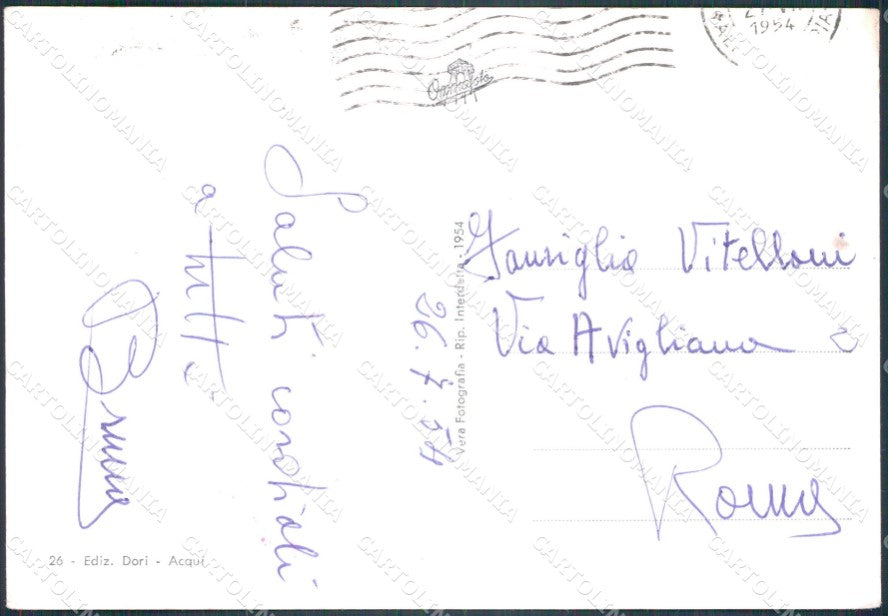 1954
Saluti cordiali
a tutti
Bruno
26.7.54
Vera Fotografia - Rip. Interdetta - 1954
Famiglia Vitelloni
Via Avigliana 2
Roma
26 - Ediz. Dori - Acqui
CARTOLINOMANIA